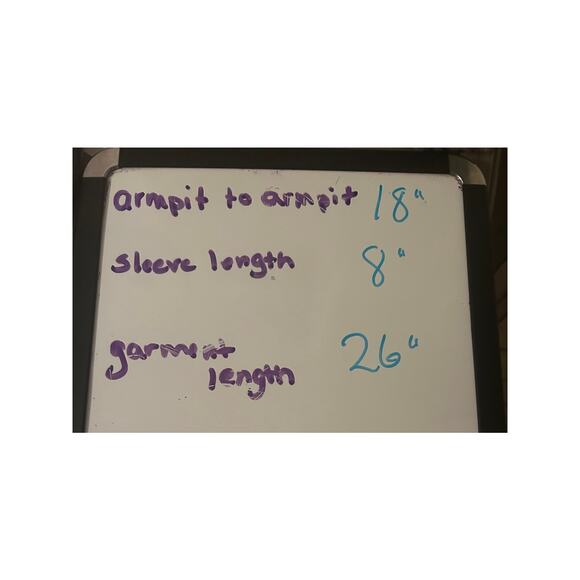 armpit to armpit 18"
sleeve length 8"
garment length 26"